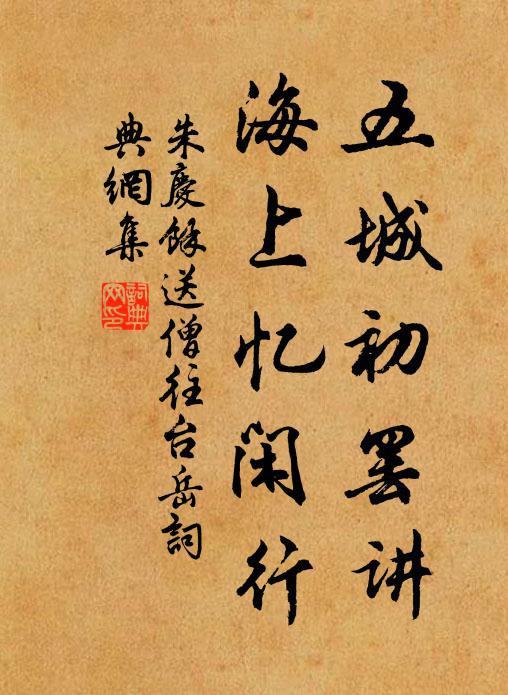 五城初罢讲
海上忆闲行
朱慶餘送僧往台岳詞
典網集
詞典網印